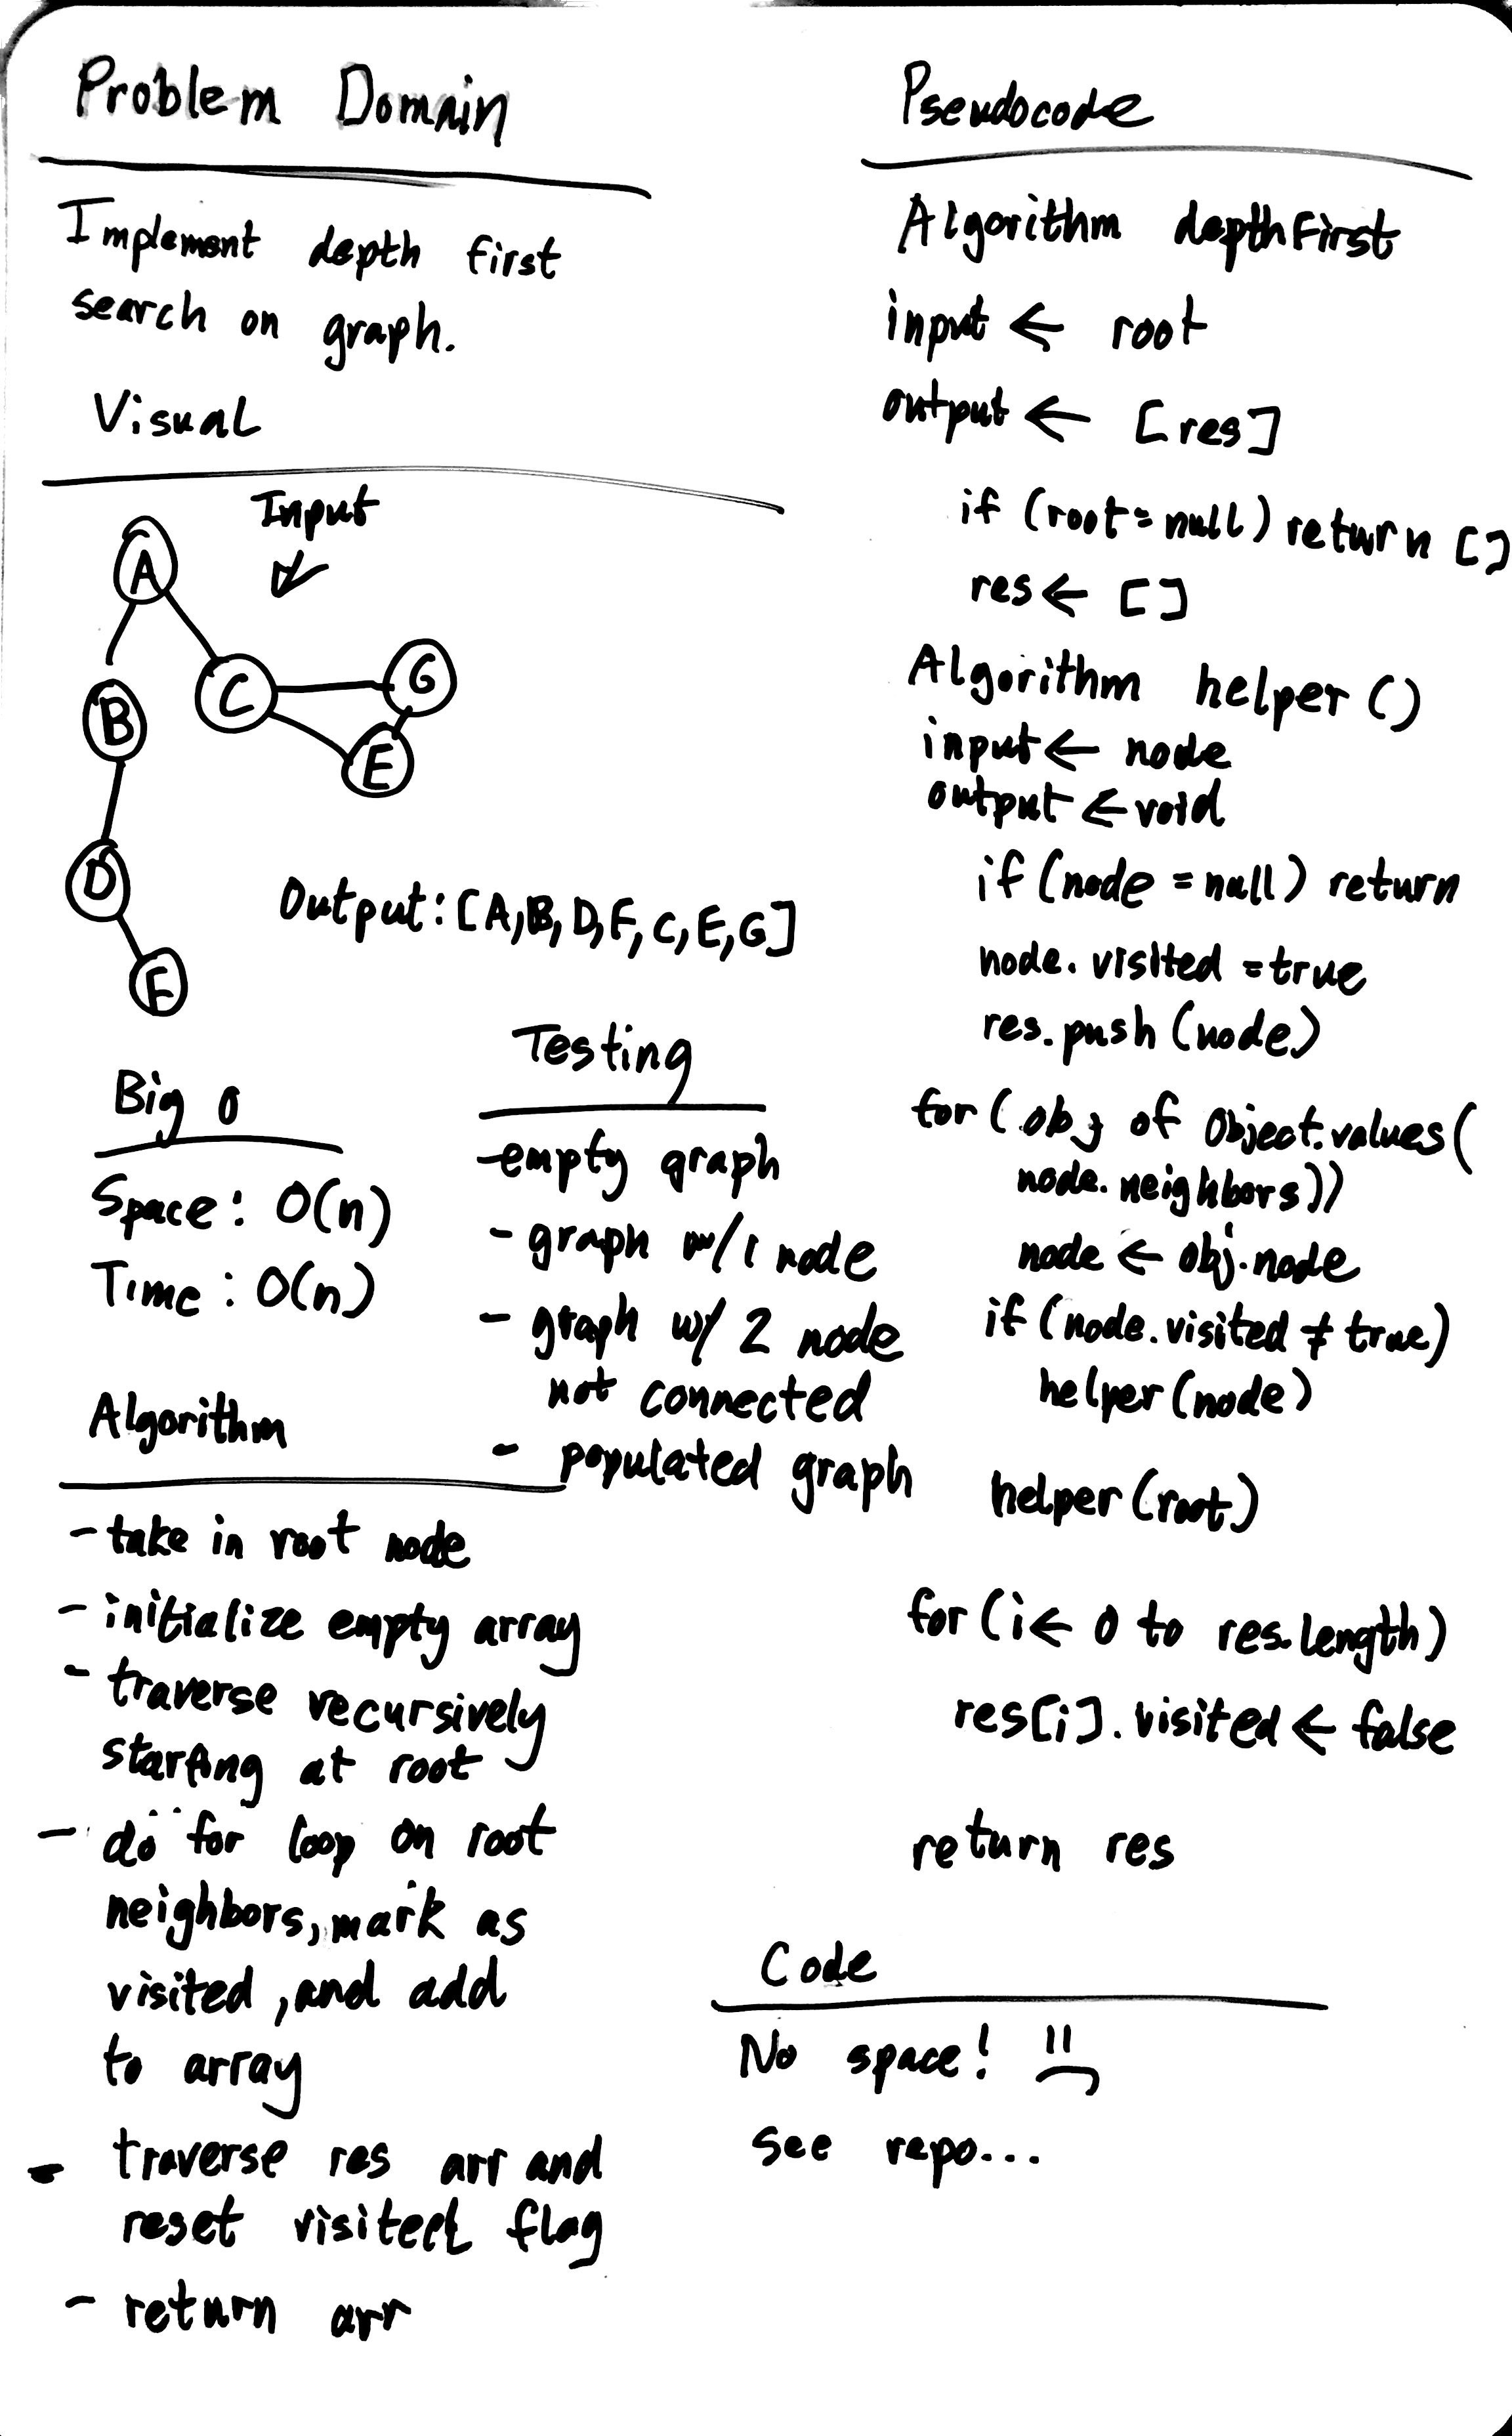 Problem Domain
Implement depth first
search on graph.
Visual
Input
A
B
C
G
E
D
F
Output: [A,B,D,F,C,E,G]
Big O
Space: O(n)
Time: O(n)
Testing
-empty graph
- graph w/1 node
- graph w/ 2 node
not connected
- populated graph
Algorithm
- take in root node
- initialize empty array
- traverse recursively
starting at root
- do for loop on root
neighbors, mark as
visited, and add
to array
- traverse res arr and
reset visited flag
- return arr
Pseudocode
Algorithm depthFirst
input ← root
output ← [res]
if (root = null) return []
res ← []
Algorithm helper ()
input ← node
output ← void
if (node = null) return
node.visited = true
res.push (node)
for (obj of Object.values(
node.neighbors))
node ← obj.node
if (node.visited ≠ true)
helper (node)
helper (root)
for (i ← 0 to res.length)
res[i].visited ← false
return res
Code
No space!
see repo...